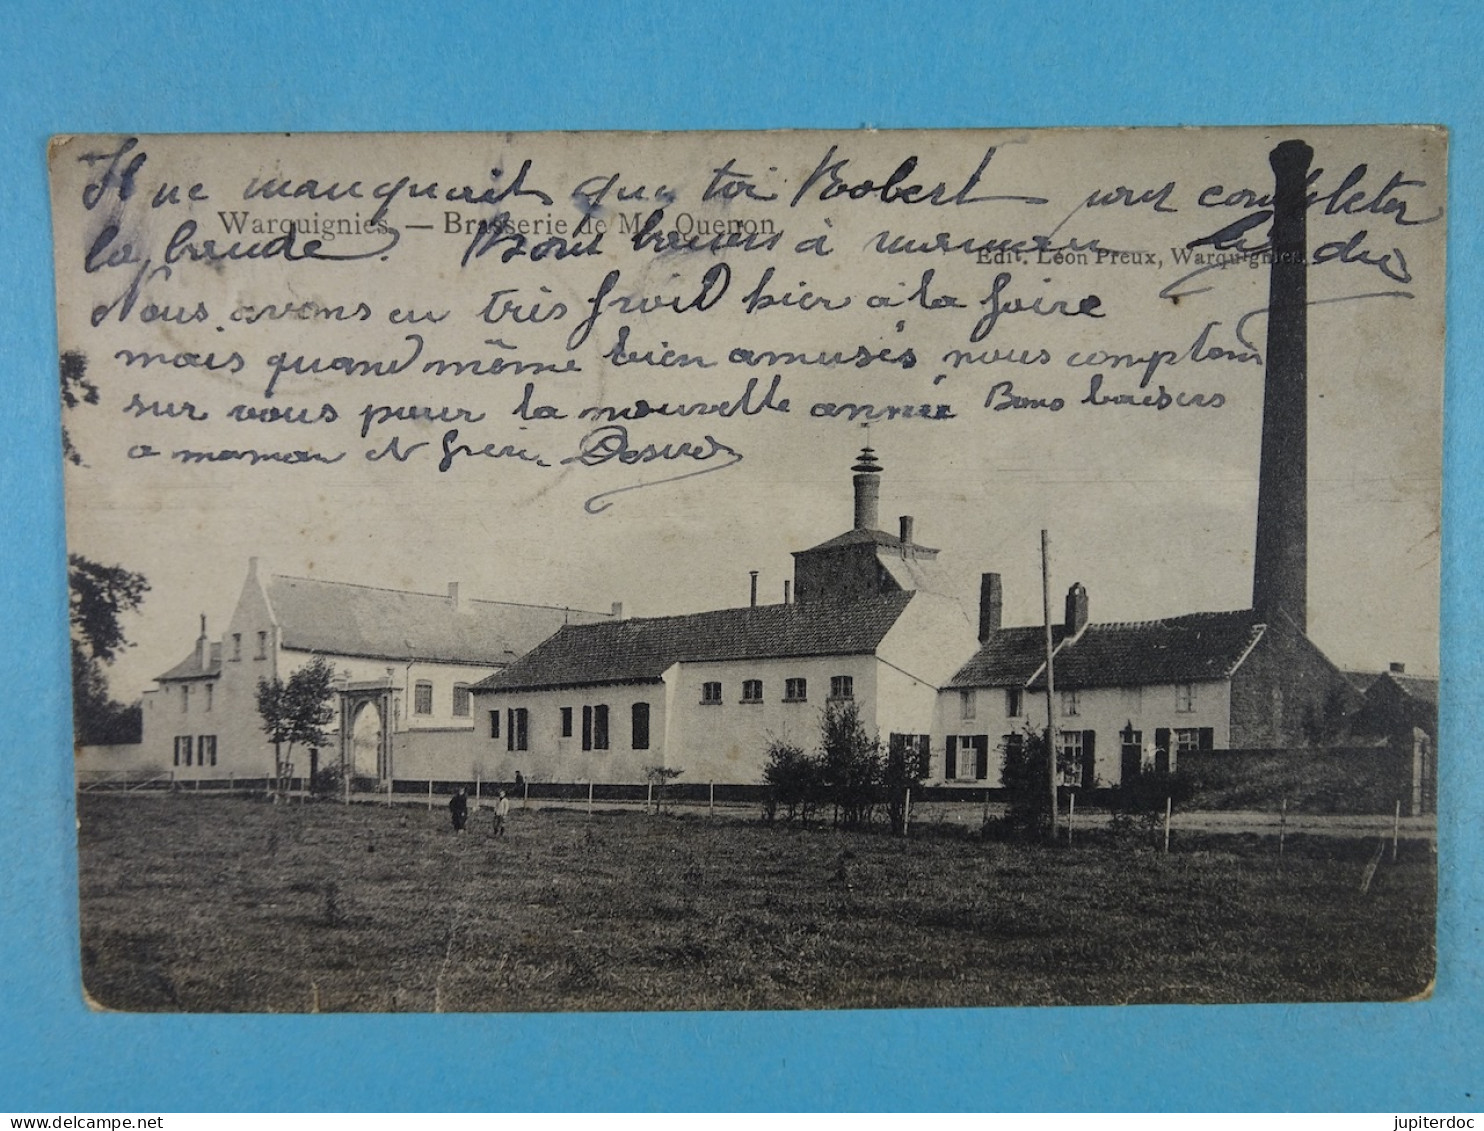 Il ne manquait que toi Robert pour completer
Warquignies. — Brasserie de Mr Quenon
la bande. Bons baisers à maman
Edit. Léon Preux, Warquignies.
Nous avons eu très froid hier à la foire
mais quand même bien amusés nous comptons
sur vous pour la nouvelle année Bons baisers
a maman et frère. Désiré
jupiterdoc